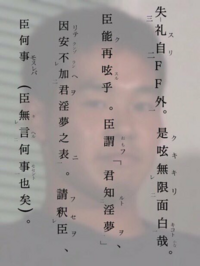 失礼自FF外。是呟無限面白哉。
臣能再呟乎。臣謂「君知淫夢」、
因安不加君淫夢之表。請釈臣、
臣何事（臣無言何事也矣）。